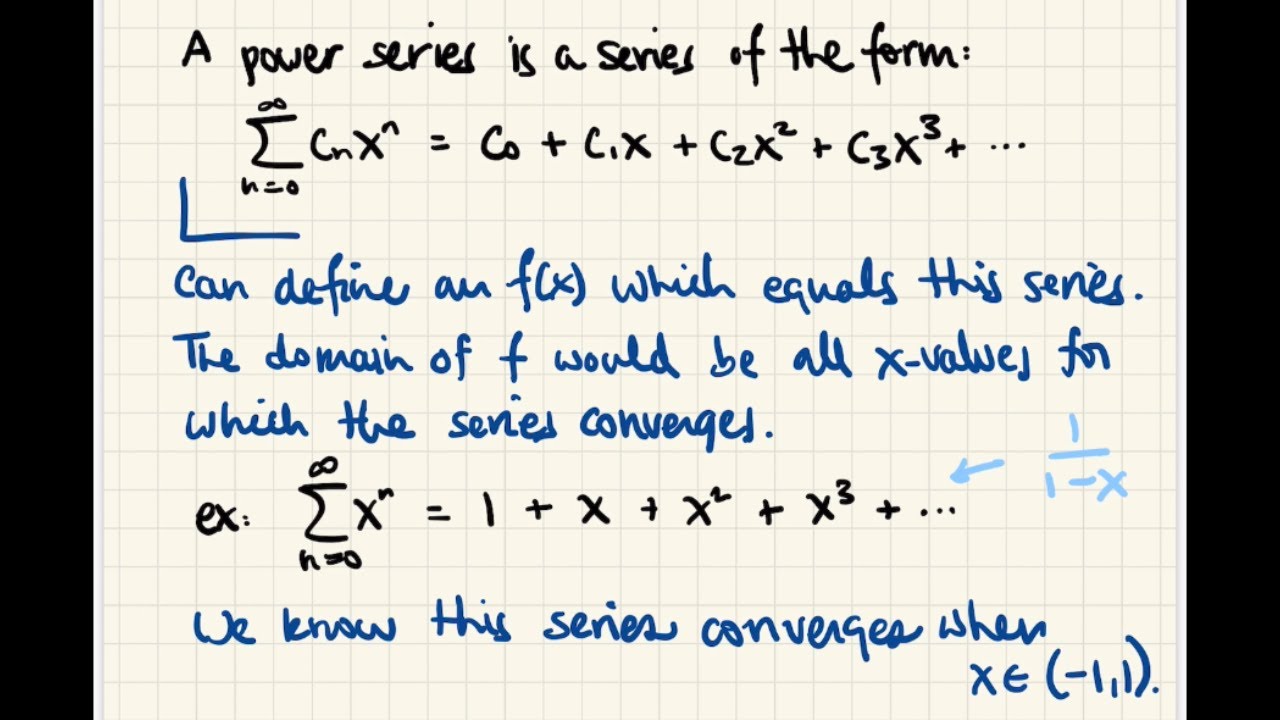 A power series is a series of the form:
∞
∑ cₙxⁿ = c₀ + c₁x + c₂x² + c₃x³ + ...
n=0
can define an f(x) which equals this series.
The domain of f would be all x-values for
which the series converges.
ex: ∞
∑ xⁿ = 1 + x + x² + x³ + ... ← 1/(1-x)
n=0
We know this series converges when
x ∈ (-1,1).